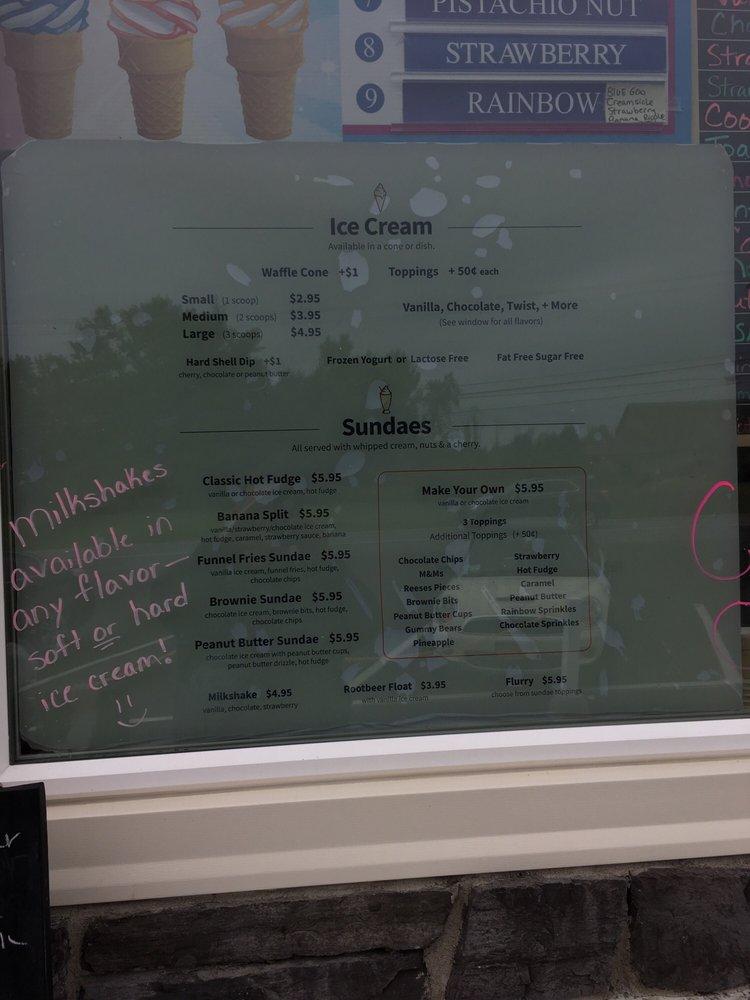 7 PISTACHIO NUT
8 STRAWBERRY
9 RAINBOW
BLUE GOO
Creamsicle
Strawberry
Banana
Ice Cream
Available in a cone or dish.
Waffle Cone +$1 Toppings + 50¢ each
Small (1 scoop) $2.95
Medium (2 scoops) $3.95
Large (3 scoops) $4.95
Vanilla, Chocolate, Twist, + More
(See window for all flavors)
Hard Shell Dip +$1
cherry, chocolate or peanut butter
Frozen Yogurt or Lactose Free
Fat Free Sugar Free
Sundaes
All served with whipped cream, nuts & a cherry.
Classic Hot Fudge $5.95
vanilla or chocolate ice cream, hot fudge
Banana Split $5.95
vanilla/strawberry/chocolate ice cream,
hot fudge, caramel, strawberry sauce, banana
Funnel Fries Sundae $5.95
vanilla ice cream, funnel fries, hot fudge,
chocolate chips
Brownie Sundae $5.95
chocolate ice cream, brownie bits, hot fudge,
chocolate chips
Peanut Butter Sundae $5.95
chocolate ice cream with peanut butter cups,
peanut butter drizzle, hot fudge
Make Your Own $5.95
vanilla or chocolate ice cream
3 Toppings
Additional Toppings (+ 50¢)
Chocolate Chips
M&Ms
Reeses Pieces
Brownie Bits
Peanut Butter Cups
Gummy Bears
Pineapple
Strawberry
Hot Fudge
Caramel
Peanut Butter
Rainbow Sprinkles
Chocolate Sprinkles
Milkshake $4.95
vanilla, chocolate, strawberry
Rootbeer Float $3.95
with vanilla ice cream
Flurry $5.95
choose from sundae toppings
Milkshakes
available in
any flavor—
soft or hard
ice cream!